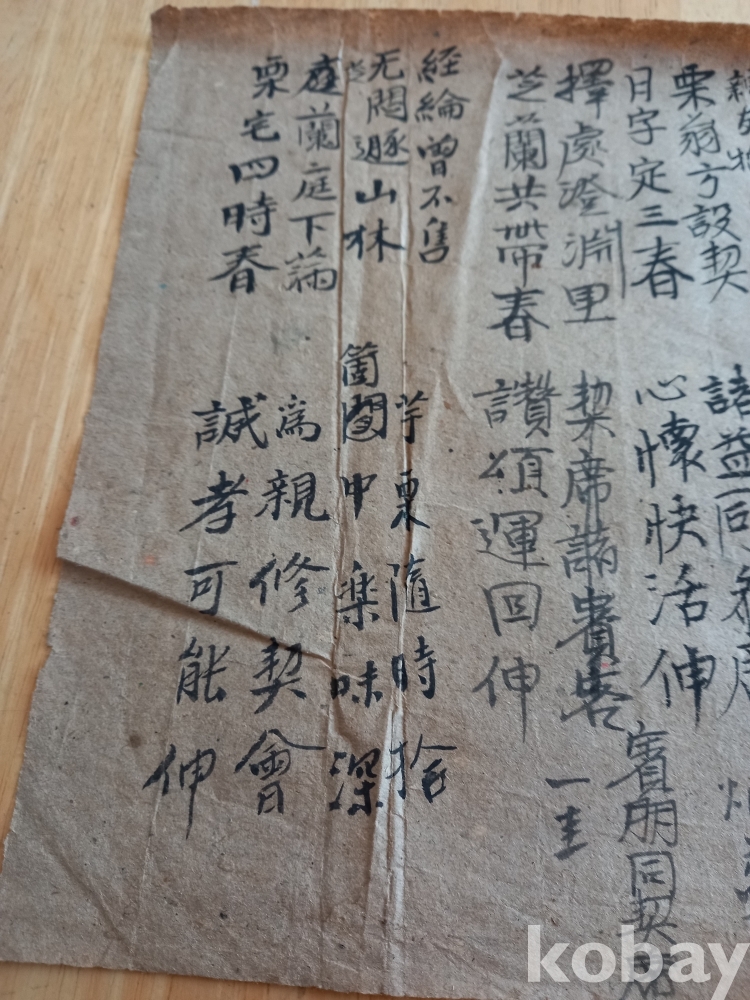 栗翁方設契
諸益同
日字定三春
心懷快活伸
賓朋同契
擇處澄淵里
契席請賓客
芝蘭共帶春
讚頌運回伸
經綸曾不售
芋栗隨時拾
无悶遯山林
箇中楽味深
蘭庭下滿
爲親修契會
栗宅四時春
誠孝可能伸
kobay